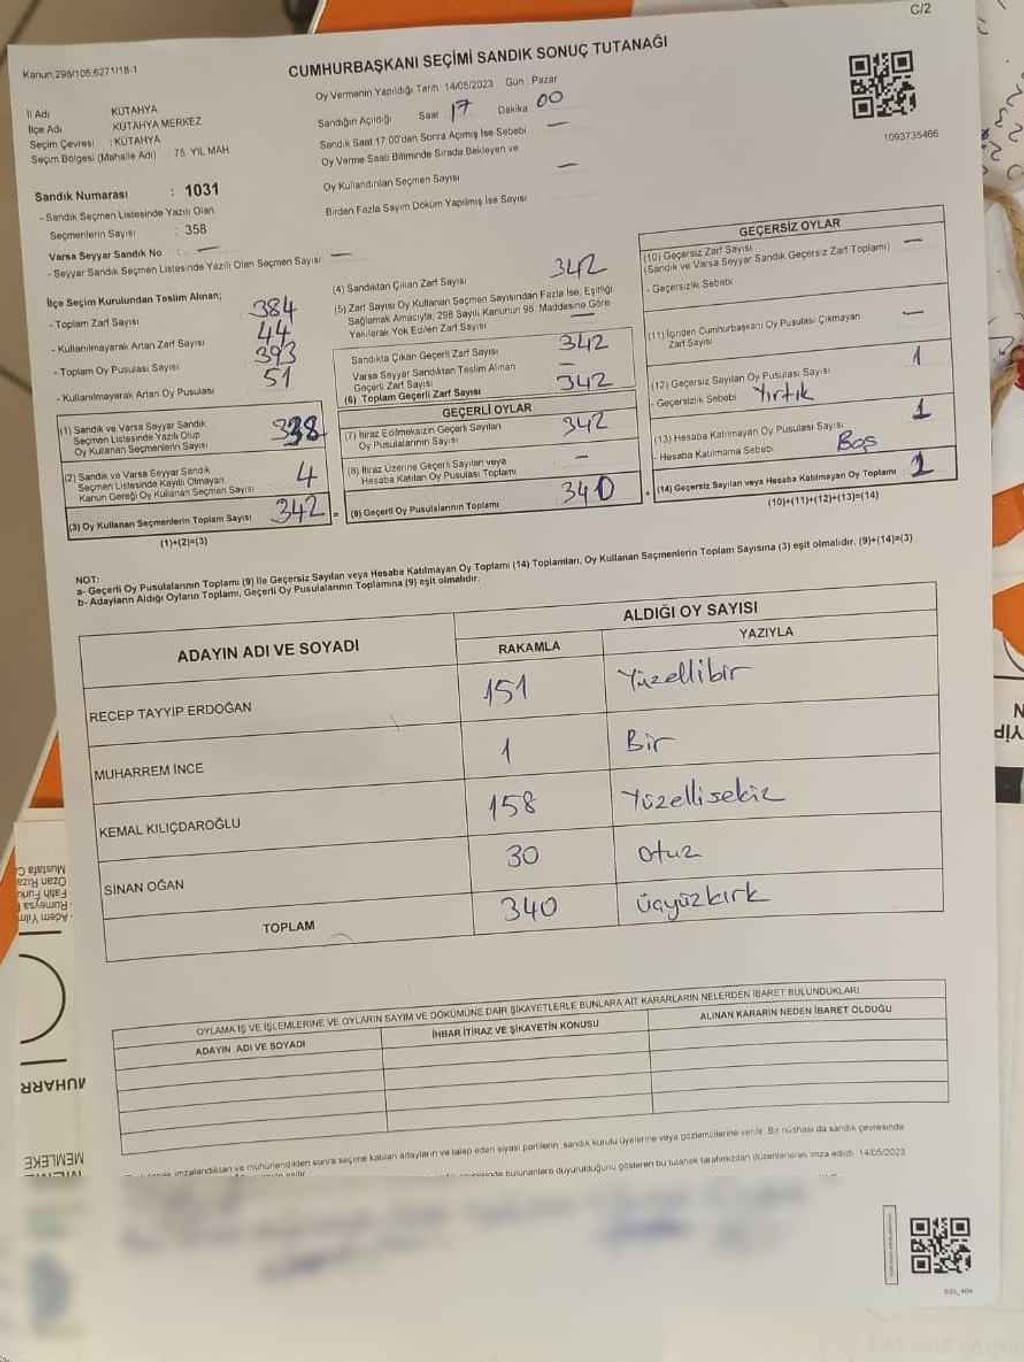 C/2
Kanun,298/105;6271/18-1
CUMHURBAŞKANI SEÇİMİ SANDIK SONUÇ TUTANAĞI
İl Adı KÜTAHYA
İlçe Adı KÜTAHYA MERKEZ
Seçim Çevresi : KÜTAHYA
Seçim Bölgesi (Mahalle Adı) 75. YIL MAH.
Oy Vermenin Yapıldığı Tarih 14/05/2023 Gün : Pazar
Sandığın Açıldığı Saat 17 Dakika 00
Sandık Saat 17:00'dan Sonra Açılmış İse Sebebi —
Oy Verme Saati Bitiminde Sırada Bekleyen ve
Oy Kullandırılan Seçmen Sayısı —
Birden Fazla Sayım Döküm Yapılmış İse Sayısı
1093735466
Sandık Numarası : 1031
- Sandık Seçmen Listesinde Yazılı Olan
Seçmenlerin Sayısı : 358
Varsa Seyyar Sandık No : —
- Seyyar Sandık Seçmen Listesinde Yazılı Olan Seçmen Sayısı —
İlçe Seçim Kurulundan Teslim Alınan;
- Toplam Zarf Sayısı 384
- Kullanılmayarak Artan Zarf Sayısı 44
- Toplam Oy Pusulası Sayısı 393
- Kullanılmayarak Artan Oy Pusulası 51
(1) Sandık ve Varsa Seyyar Sandık
Seçmen Listesinde Yazılı Olup
Oy Kullanan Seçmenlerin Sayısı 338
(2) Sandık ve Varsa Seyyar Sandık
Seçmen Listesinde Kayıtlı Olmayan,
Kanun Gereği Oy Kullanan Seçmen Sayısı 4
(3) Oy Kullanan Seçmenlerin Toplam Sayısı 342
(1)+(2)=(3)
(4) Sandıktan Çıkan Zarf Sayısı 342
(5) Zarf Sayısı Oy Kullanan Seçmen Sayısından Fazla İse, Eşitliği
Sağlamak Amacıyla, 298 Sayılı Kanunun 98. Maddesine Göre
Yakılarak Yok Edilen Zarf Sayısı —
Sandıkta Çıkan Geçerli Zarf Sayısı 342
Varsa Seyyar Sandıktan Teslim Alınan
Geçerli Zarf Sayısı —
(6) Toplam Geçerli Zarf Sayısı 342
GEÇERLİ OYLAR
(7) İtiraz Edilmeksizin Geçerli Sayılan
Oy Pusulalarının Sayısı 342
(8) İtiraz Üzerine Geçerli Sayılan veya
Hesaba Katılan Oy Pusulası Toplamı —
(9) Geçerli Oy Pusulalarının Toplamı 340
GEÇERSİZ OYLAR
(10) Geçersiz Zarf Sayısı
(Sandık ve Varsa Seyyar Sandık Geçersiz Zarf Toplamı) —
- Geçersizlik Sebebi
(11) İçinden Cumhurbaşkanı Oy Pusulası Çıkmayan
Zarf Sayısı —
(12) Geçersiz Sayılan Oy Pusulası Sayısı 1
- Geçersizlik Sebebi Yırtık
(13) Hesaba Katılmayan Oy Pusulası Sayısı 1
- Hesaba Katılmama Sebebi Boş
(14) Geçersiz Sayılan veya Hesaba Katılmayan Oy Toplamı
(10)+(11)+(12)+(13)=(14)
NOT:
a- Geçerli Oy Pusulalarının Toplamı (9) ile Geçersiz Sayılan veya Hesaba Katılmayan Oy Toplamı (14) Toplamları, Oy Kullanan Seçmenlerin Toplam Sayısına (3) eşit olmalıdır. (9)+(14)=(3)
b- Adayların Aldığı Oyların Toplamı, Geçerli Oy Pusulalarının Toplamına (9) eşit olmalıdır.
ADAYIN ADI VE SOYADI
ALDIĞI OY SAYISI
RAKAMLA YAZIYLA
RECEP TAYYİP ERDOĞAN 151 Yüzellibir
MUHARREM İNCE 1 Bir
KEMAL KILIÇDAROĞLU 158 Yüzellisekiz
SİNAN OĞAN 30 Otuz
TOPLAM 340 üçyüzkırk
OYLAMA İŞ VE İŞLEMLERİNE VE OYLARIN SAYIM VE DÖKÜMÜNE DAİR ŞİKAYETLERLE BUNLARA AİT KARARLARIN NELERDEN İBARET BULUNDUKLARI
ADAYIN ADI VE SOYADI İHBAR İTİRAZ VE ŞİKAYETİN KONUSU ALINAN KARARIN NEDEN İBARET OLDUĞU
imzalandıktan ve mühürlendikten sonra seçime katılan adayların ve talep eden siyasi partilerin sandık kurulu üyelerine veya gözlemcilerine verilir. Bir nüshası da sandık çevresinde
bulunanlara duyurulduğunu gösteren bu tutanak tarafımızdan düzenlenerek imza edildi. 14/05/2023
MUHARR
MEMLEKE
YİP
N